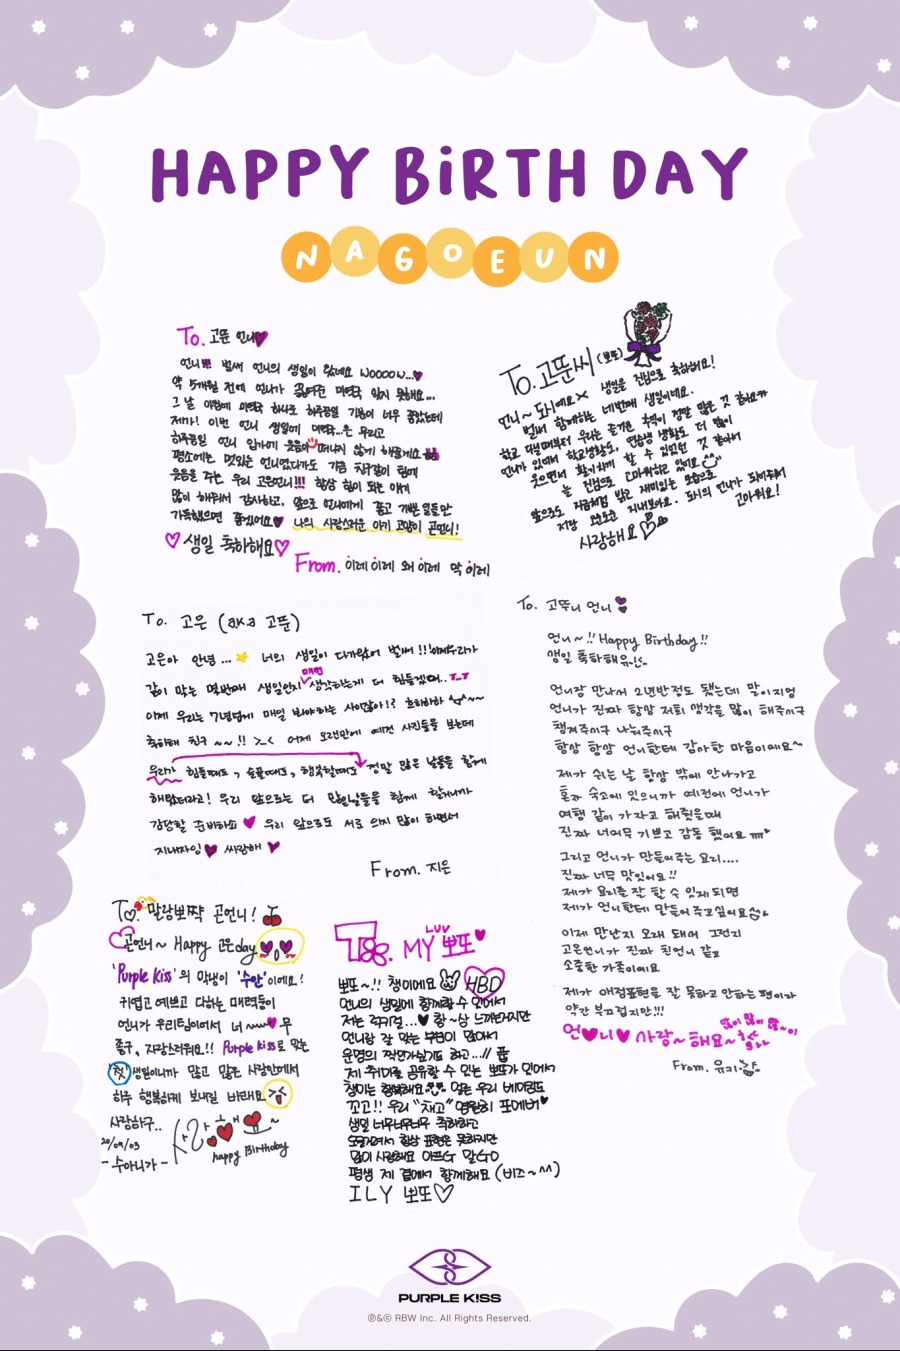 HAPPY BiRTH DAY
NAGOEUN
To. 고뚠 언니
언니!!! 벌써 언니의 생일이 왔네요 WOOOOW...
약 5개월 전에 언니가 끓여준 미역국 잊지 못해요...
그 날 아침에 미역국 해서도 하루종일 기분이 너무 좋았는데
제가! 이번 언니 생일에 미역국...은 무리고
하루종일 언니 입가에 웃음이 떠나지 않게 해줄게요
평소에는 멋있는 언니였다가도 가끔 친구같이 함께
웃음을 주는 우리 고은언니!!! 항상 힘이 되는 얘기
많이 해줘서 감사하고, 앞으로 언니에게 좋고 기쁜 일들만
가득했으면 좋겠어요 나의 사랑스러운 아기 고양이 곤언니!
생일 축하해요
From. 이레이레 왜 이레 막 이레
To. 고뚠씨 (뽀또)
언니~ 도시에요 생일을 진심으로 축하해요!
벌써 함께하는 네번째 생일이네요.
학교 다닐때부터 우리는 즐거운 추억이 정말 많은 것 같아요
언니가 있어서 학교생활도, 연습생 생활도 더 많이
웃으면서 활기차게 할 수 있었던 것 같아서
늘 진심으로 고마워하고 있어요
앞으로도 지금처럼 밝고 재미있는 모습으로
저랑 지내보아요. 도시의 언니가 되어줘서
고마워요!
사랑해요
To. 고은 (a.k.a 고뚠)
고은아 안녕... 너의 생일이 다가왔어 벌써!! 이제 우리가
같이 맞는 몇번째 생일인지 매번 생각하는게 더 힘들겠어..
이제 우리는 7년넘게 매일 봐야하는 사이잖아!? 흐히하하
축하해 친구 ~~!! >_< 어제 오랜만에 예전 사진들을 보는데
우리가 힘들때도, 슬플때도, 행복할때도 정말 많은 날들을 함께
해왔더라고! 우리 앞으로는 더 많은날들을 함께 할거니까
감당할 준비하고 우리 앞으로도 서로 의지 많이 하면서
지내자잉 싸랑해
From. 지은
To. 고뚜니 언니
언니~!! Happy Birthday!!
생일 축하해유
언니랑 만나서 2년반정도 됐는데 말이지영
언니가 진짜 항상 저희 생각을 많이 해주시구
챙겨주시구 나눠주시구
항상 항상 언니한테 감사한 마음이에요~
제가 쉬는 날 항상 밖에 안나가고
혼자 숙소에 있으니까 예전에 언니가
여행 같이 가자고 해줬을때
진짜 너어무 기쁘고 감동 했어요
그리고 언니가 만들어주는 요리....
진짜 너무 맛있어요!!
제가 요리를 잘 할 수 있게 되면
제가 언니한테 만들어 주고싶어요
이제 만난지 오래 돼서 그런지
고은언니가 진짜 친언니 같고
소중한 가족이에요
제가 애정표현을 잘 못하고 안하는 편이라
약간 부끄럽지만!!!
언니 사랑~해요~ 많이 많이 많~이
From. 유키
To. 말랑뽀짝 곤언니!
곤언니~ Happy 고은day
'Purple kiss'의 막냉이 '수안'이에요!
귀엽고 예쁘고 다하는 매력둥이
언니가 우리팀이어서 너~~무
좋구, 자랑스러워요!! Purple kiss로 맞는
첫 생일이니까 많고 많은 사랑안에서
하루 행복하게 보내길 바래요
사랑하구..
사랑해요~
20/09/03
happy Birthday
- 수아니가 -
To. MY LUV 뽀또
뽀또~!! 챙이에요 HBD
언니의 생일에 함께할 수 있어서
저는 럭키걸... 항~상 느끼는거지만
언니랑 잘 맞는 부분이 많아서
운명의 짝인가싶기도 하고...// 풉
제 취미를 공유할 수 있는 뽀또가 있어서
챙이는 행복해요 얻은 우리 베이비도
꼬고!! 우리 "채고" 영원히 포에버
생일 너무너무너무 축하하고
오글거려서 항상 표현은 못하지만
많이 사랑해요
평생 제 곁에서 함께해요 (비즈~^^)
ILY 뽀또
PURPLE K!SS
℗&© RBW Inc. All Rights Reserved.